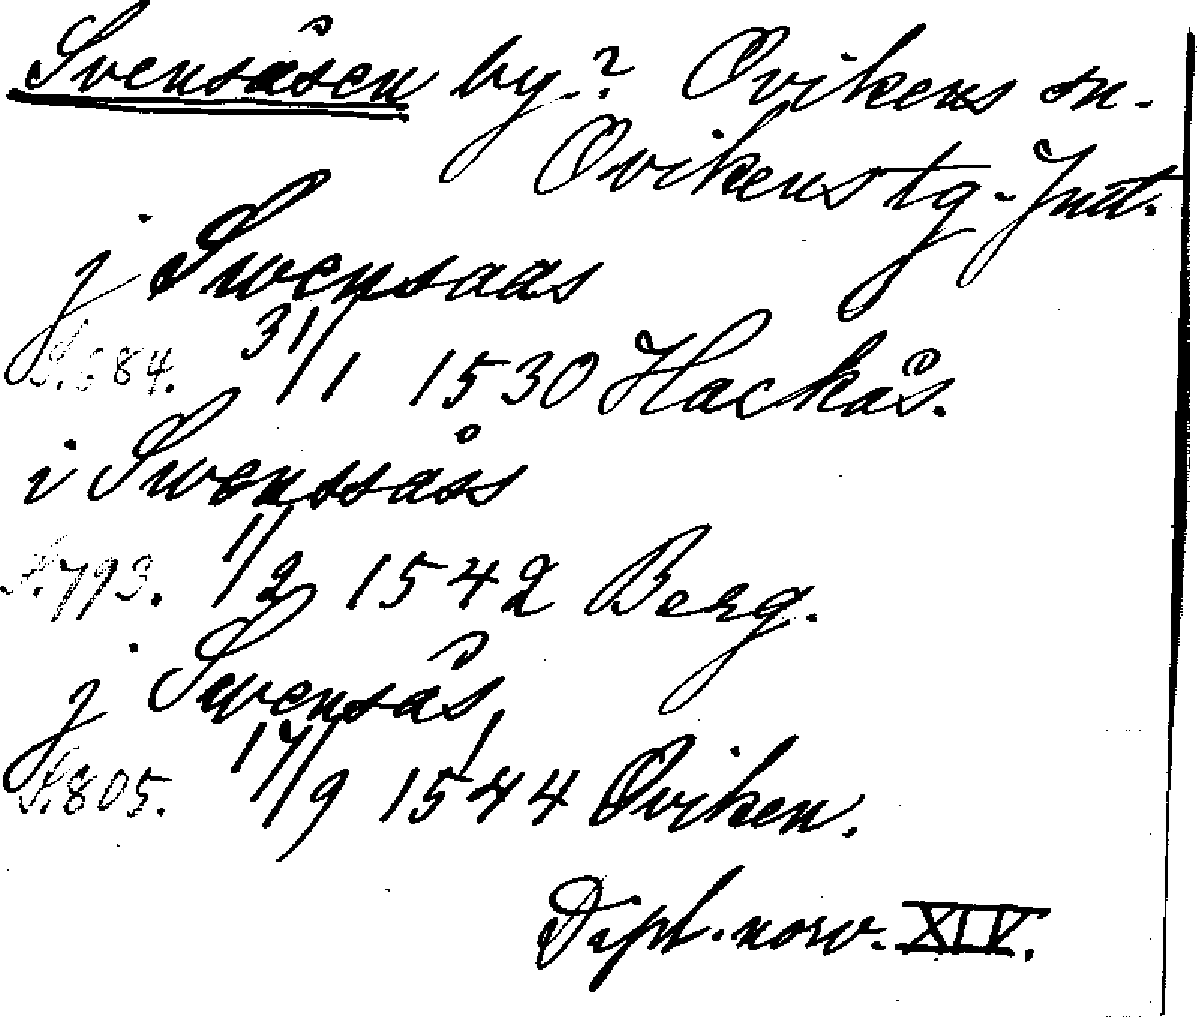 Svensåsen by? Ovikens sn.
Ovikens tg. Jmtl.
j Swensaas
S. 684. 31/1 1530 Hackås.
i Swenssåss
S. 793. 11/2 1542 Berg.
j Swensås
S. 805. 17/9 1544 Oviken.
Dipl. norv. XIV.